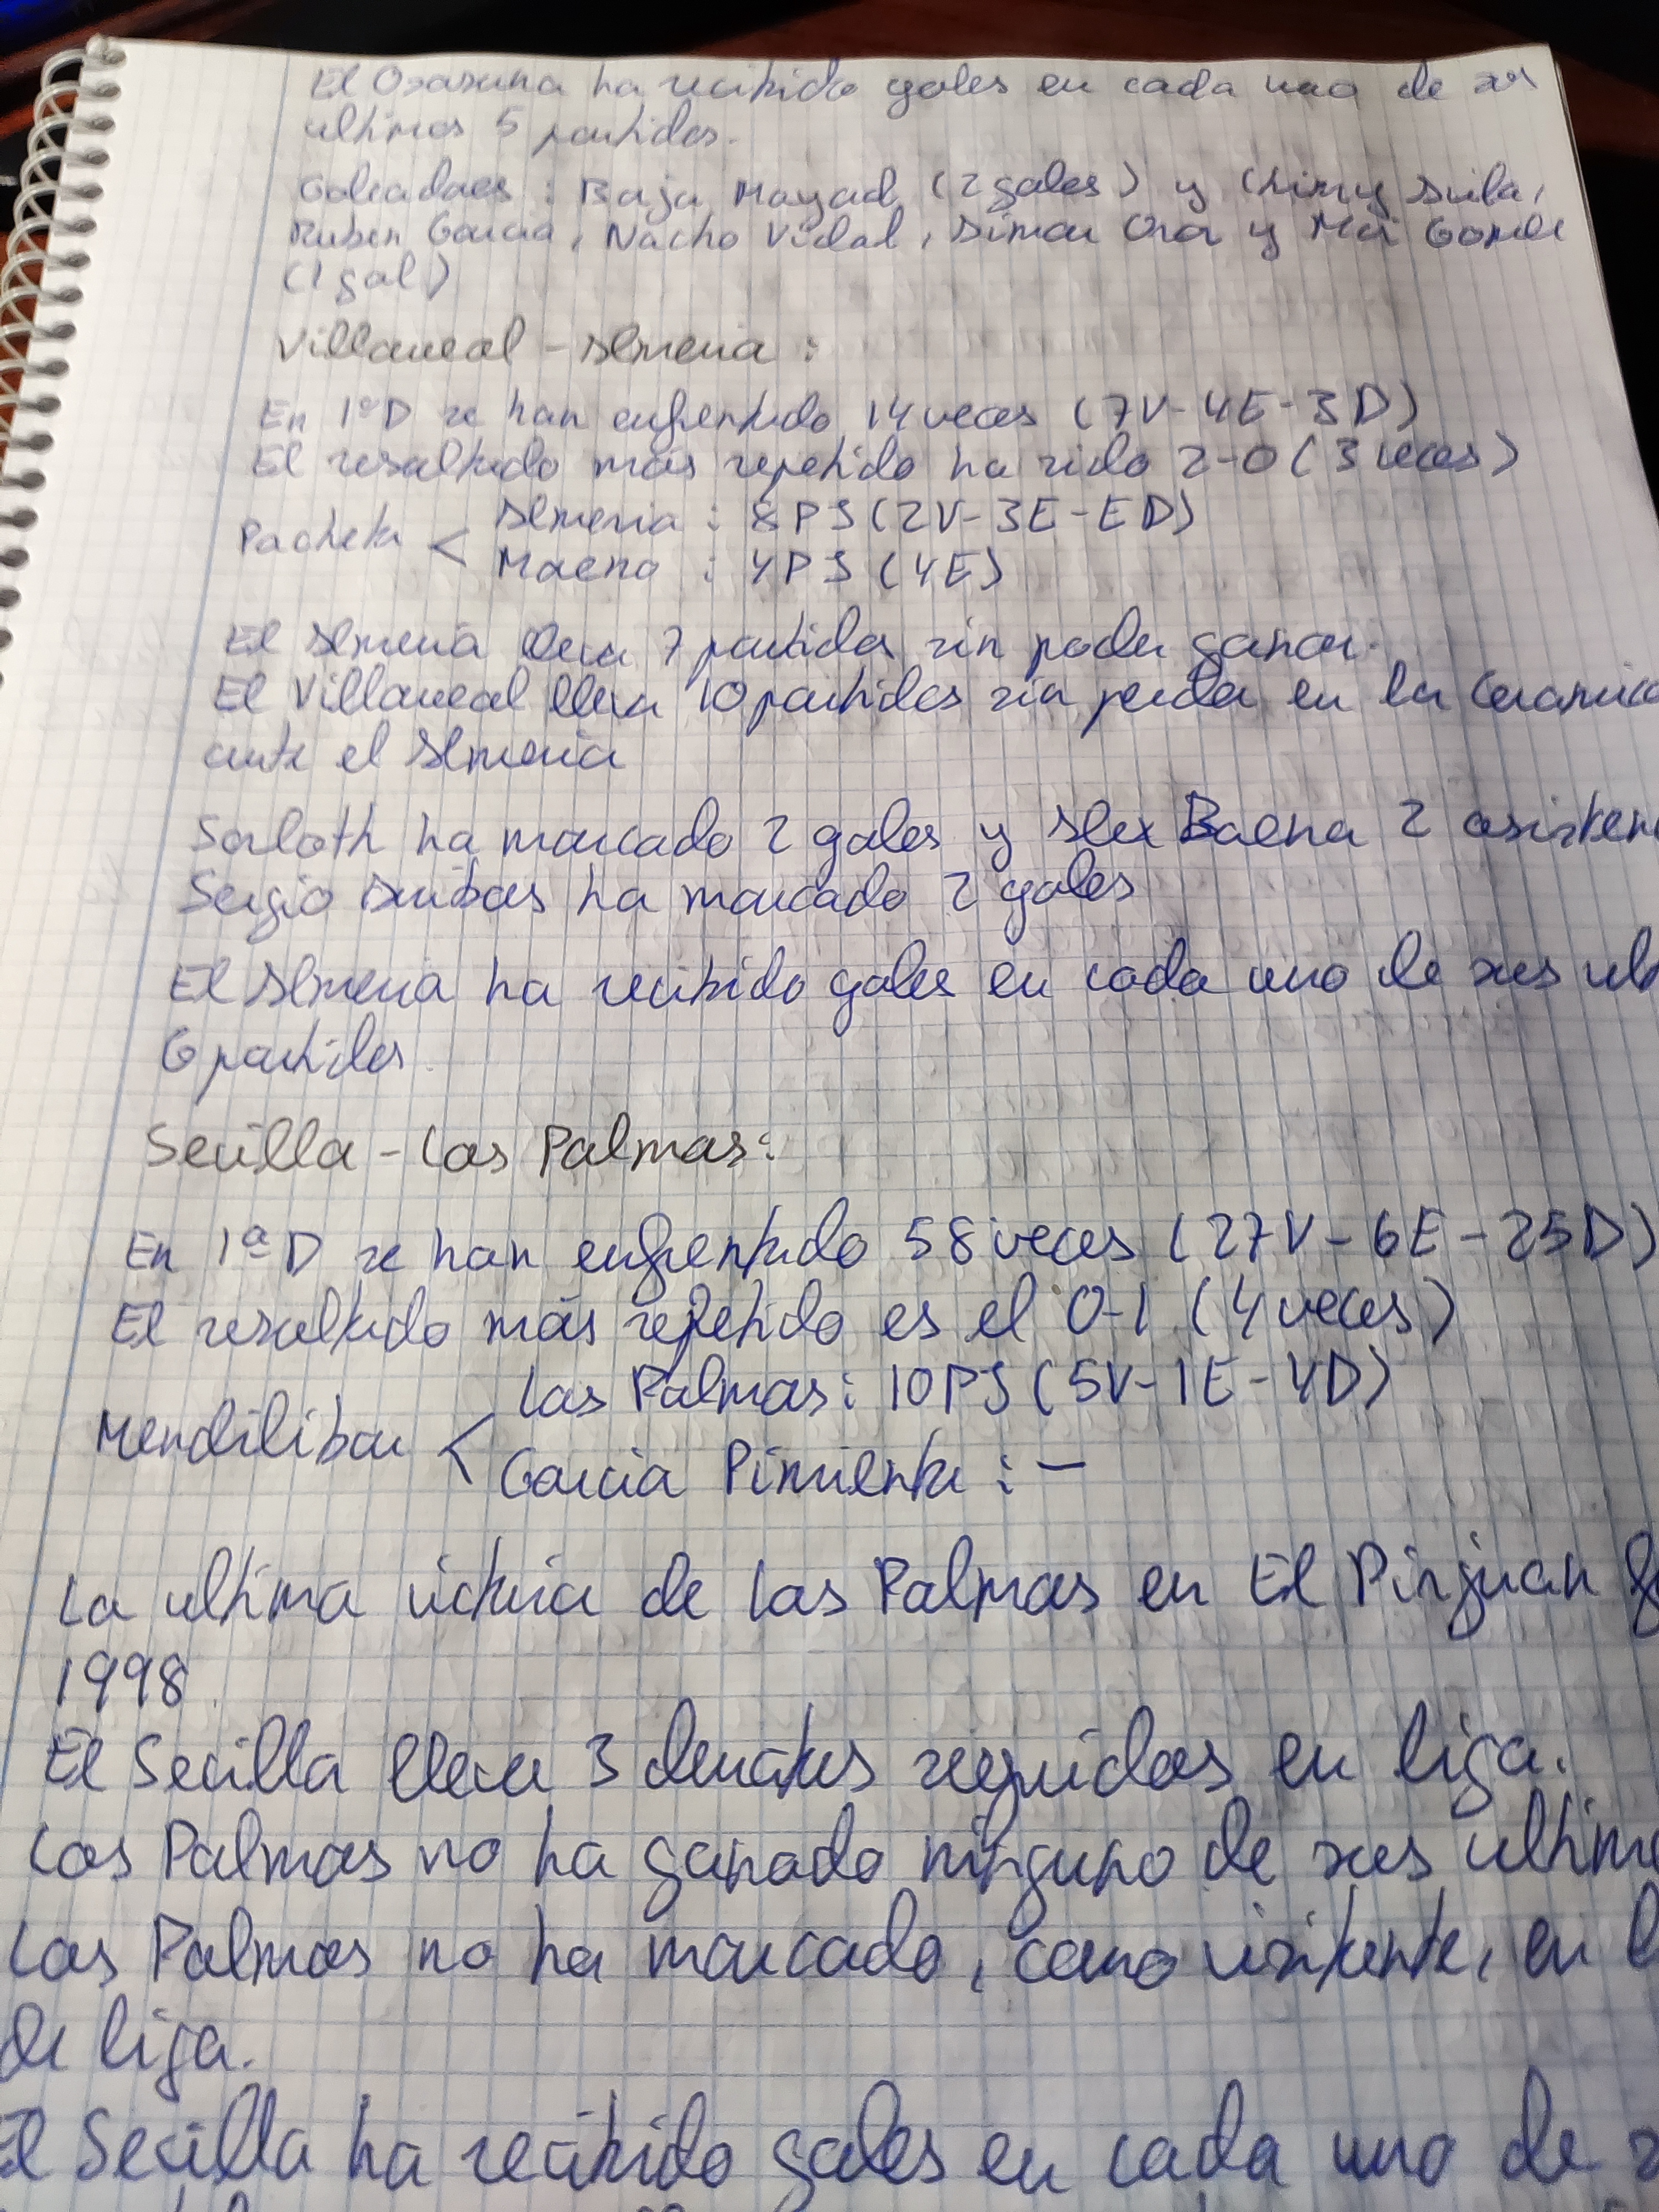 El Osasuna ha recibido goles en cada uno de sus
ultimos 5 partidos.
Goleadores : Baja Moyad (2 goles) y Chimy Avila,
Ruben Garcia, Nacho Vidal, Aimar Oroz y Moi Gomez
(1 gol)
Villarreal - Almeria :
En 1ªD se han enfrentado 14 veces (7V-4E-3D)
El resultado más repetido ha sido 2-0 (3 veces)
Pacheta < Almeria : 8PS (2V-3E-ED)
Moreno : 4PS (4E)
El Almeria lleva 7 partidos sin poder ganar.
El Villarreal lleva 10 partidos sin perder en la Ceramica
ante el Almeria
Sorloth ha marcado 2 goles y Alex Baena 2 asisten
Sergio Arribas ha marcado 2 goles
El Almeria ha recibido goles en cada uno de sus ult
6 partidos.
Sevilla - Las Palmas:
En 1ªD se han enfrentado 58 veces (27V-6E-25D)
El resultado más repetido es el 0-1 (4 veces)
Las Palmas: 10PS (5V-1E-4D)
Mendilibar <
Garcia Pimienta : -
La ultima victoria de Las Palmas en El Pizjuan f
1998.
El Sevilla lleva 3 derrotas seguidas en liga.
Las Palmas no ha ganado ninguno de sus ultim
Las Palmas no ha marcado, como visitante, en
de liga.
El Sevilla ha recibido goles en cada uno de